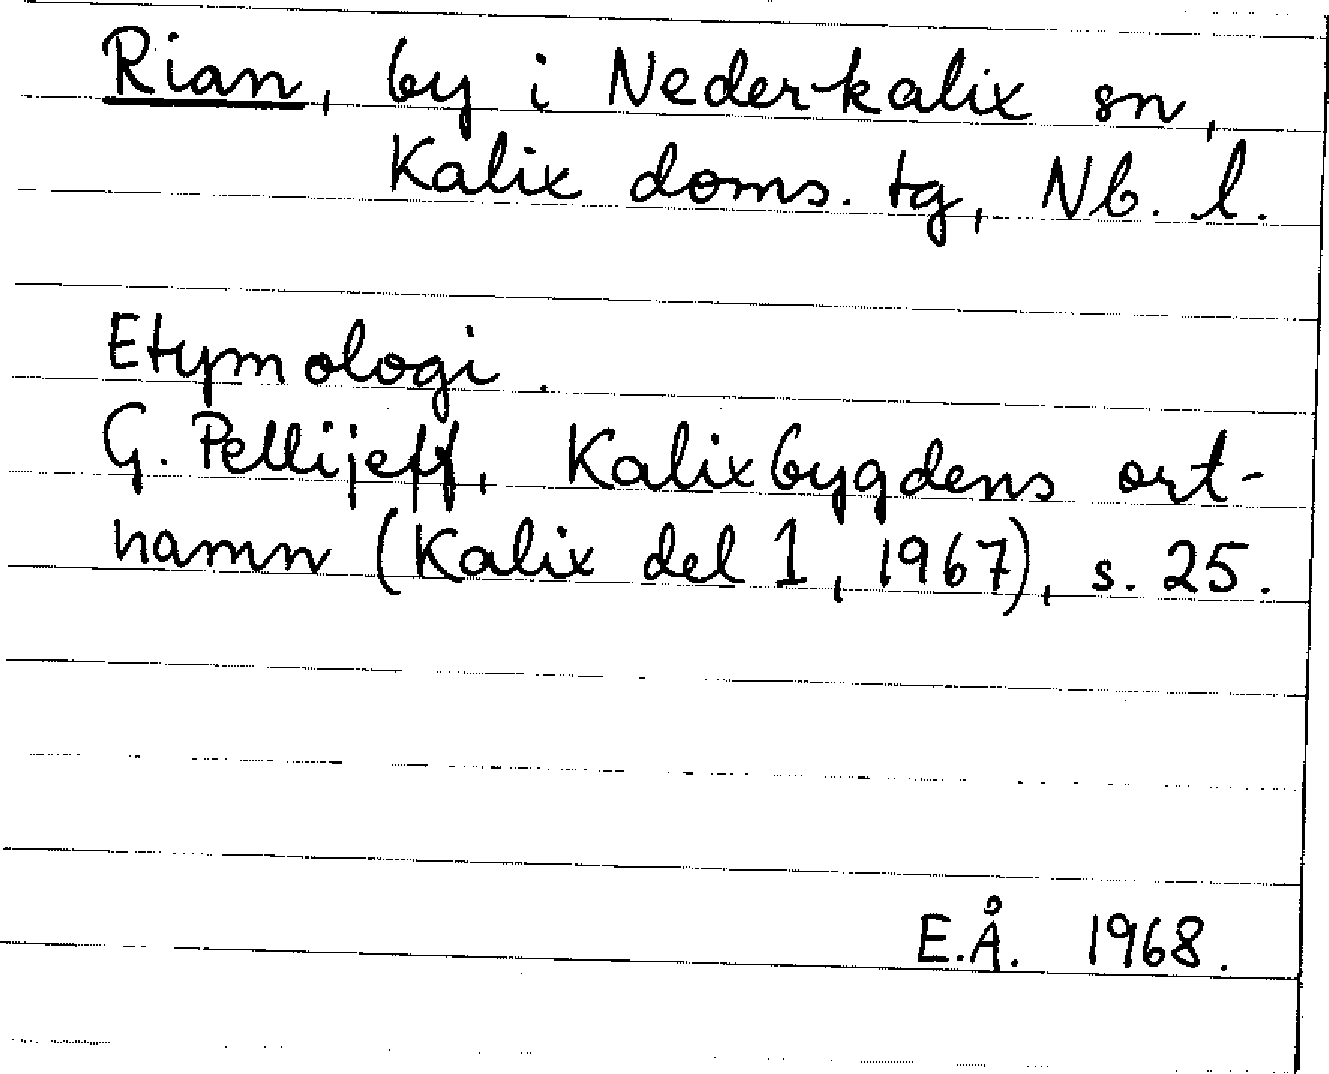 Rian, by i Nederkalix sn,
Kalix doms. tg, Nb. l.
Etymologi.
G. Pellijeff, Kalixbygdens ort-
namn (Kalix del 1, 1967), s. 25.
E.Å. 1968.